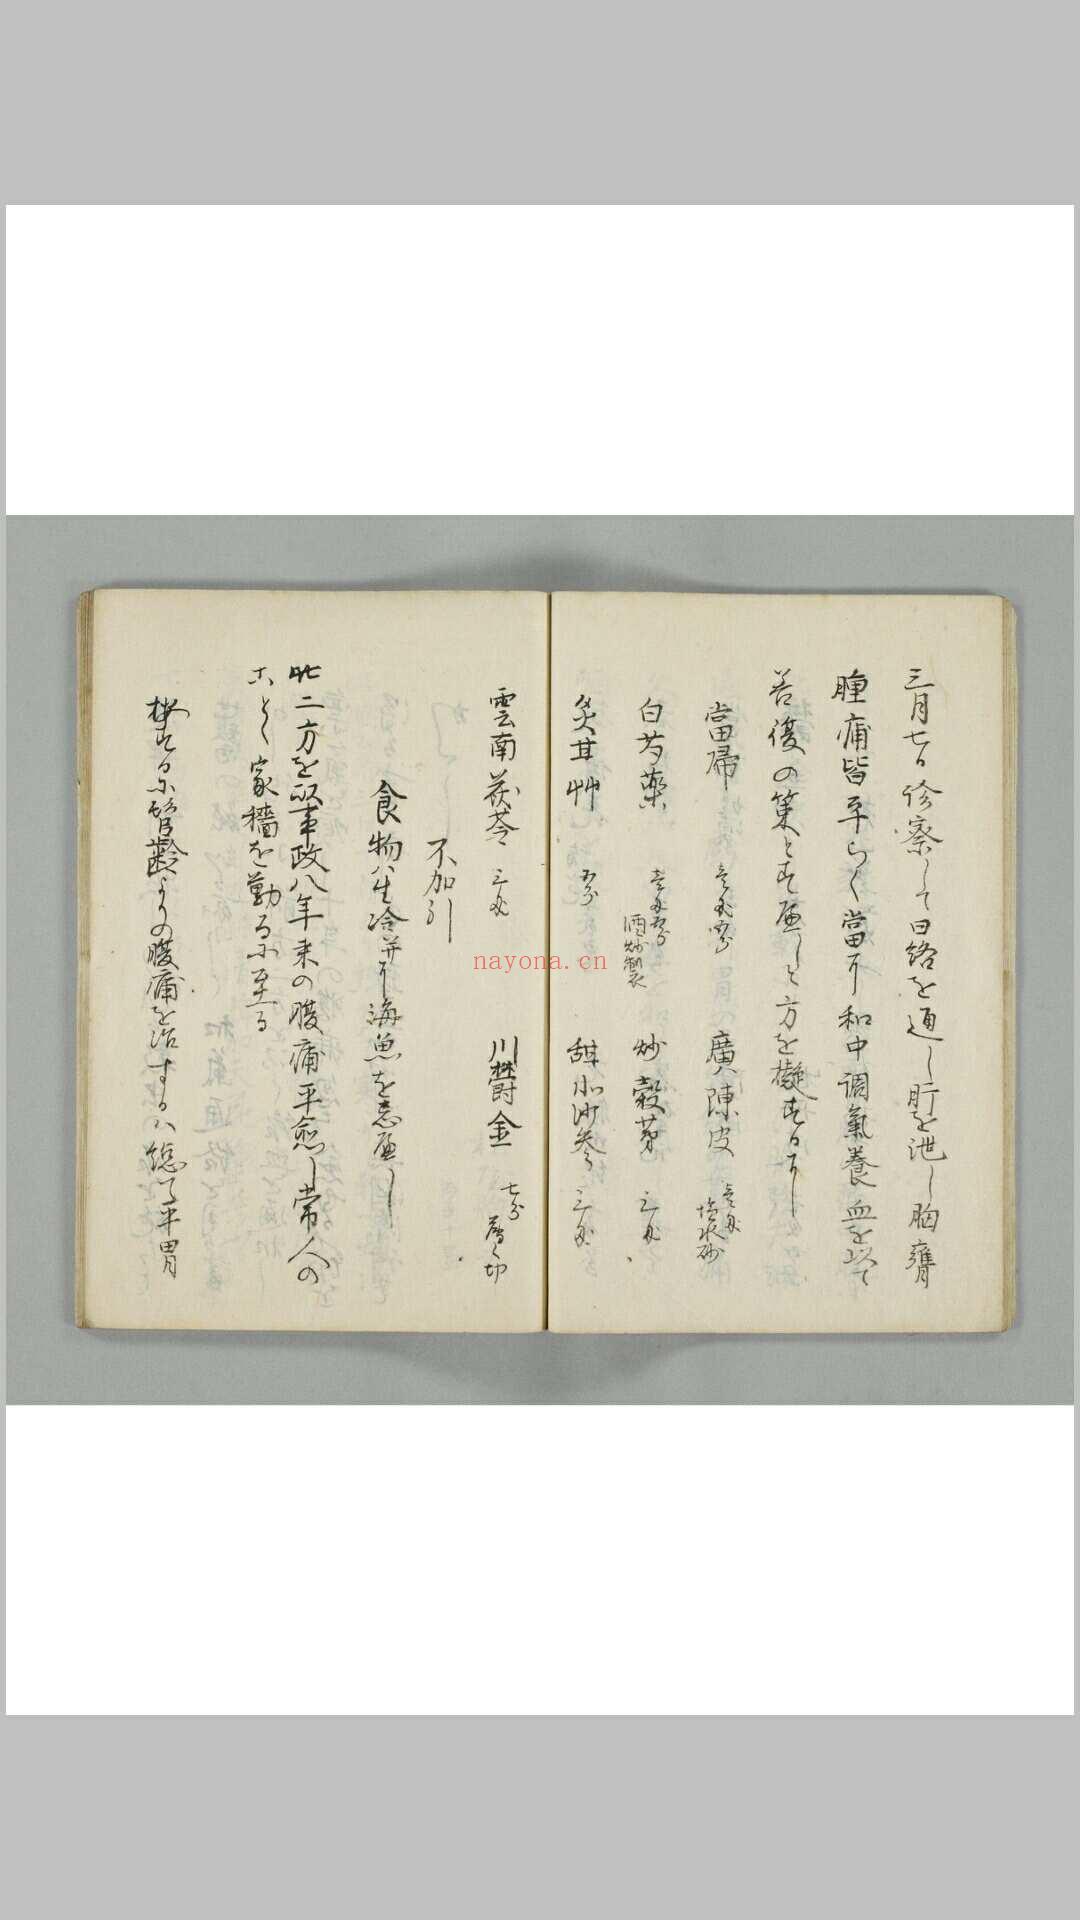 三月七日診察して曰絡を通し肝を泄し胸癰
腫痛皆平らく當に和中調氣養血を以て
善後の策とすべしと方を擬す日に
當歸 壱戔四分 廣陳皮 壱戔 塩水砂
白芍藥 壱戔五分 酒炒製 炒穀芽 三戔
炙甘艸 五分 甜北沙參 三戔
雲南茯苓 三戔 川欝金 七分 切
不加引
食物ハ生冷并に海魚を忌べし
此二方を以事政八年来の腹痛平愈し常人の
ことく家穡を勤るに至る
按するに髫齡よりの腹痛を治するハ總て平胃
nayona.cn